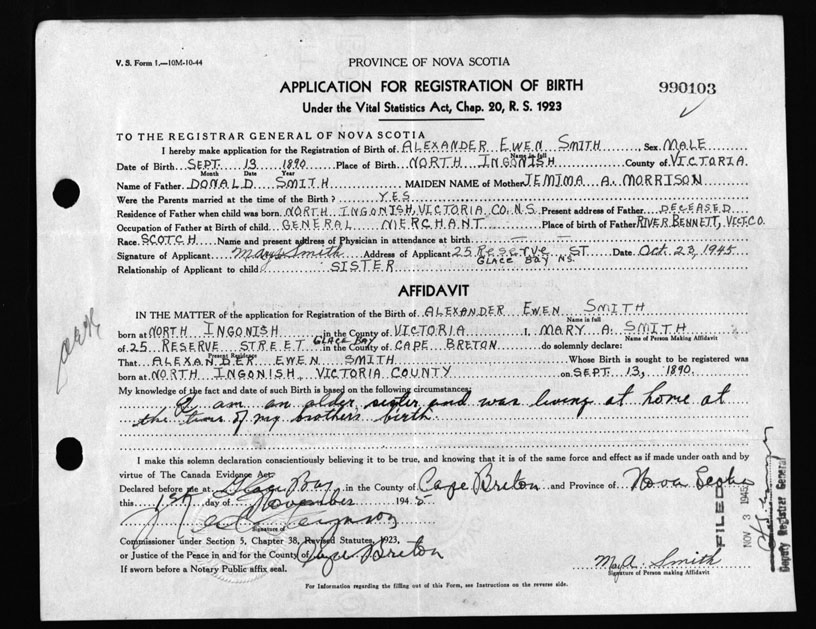 V. S. Form 1.—10M-10-44
PROVINCE OF NOVA SCOTIA
APPLICATION FOR REGISTRATION OF BIRTH
990103
Under the Vital Statistics Act, Chap. 20, R. S. 1923
TO THE REGISTRAR GENERAL OF NOVA SCOTIA
I hereby make application for the Registration of Birth of ALEXANDER EWEN SMITH, Sex MALE
Name in full
Date of Birth SEPT. 13 1890 Place of Birth NORTH INGONISH County of VICTORIA
Month Date Year
Name of Father DONALD SMITH MAIDEN NAME of Mother JEMIMA A. MORRISON
Were the Parents married at the time of the Birth? YES
Residence of Father when child was born NORTH INGONISH, VICTORIA CO. N.S. Present address of Father DECEASED
Occupation of Father at Birth of child GENERAL MERCHANT Place of birth of Father RIVER BENNETT, VICT. CO.
Race SCOTCH Name and present address of Physician in attendance at birth — —
Signature of Applicant Mary A. Smith Address of Applicant 25 Reserve ST Date Oct 23, 1945
GLACE BAY N.S.
Relationship of Applicant to child SISTER
AFFIDAVIT
IN THE MATTER of the application for Registration of the Birth of ALEXANDER EWEN SMITH
Name in full
born at NORTH INGONISH in the County of VICTORIA I, MARY A. SMITH
Name of Person Making Affidavit
of 25 RESERVE STREET GLACE BAY in the County of CAPE BRETON do solemnly declare:
Present Residence
That ALEXANDER EWEN SMITH Whose Birth is sought to be registered was
born at NORTH INGONISH, VICTORIA COUNTY on SEPT. 13, 1890.
My knowledge of the fact and date of such Birth is based on the following circumstances:
I am an older sister and was living at home at
the time of my brothers birth.
I make this solemn declaration conscientiously believing it to be true, and knowing that it is of the same force and effect as if made under oath and by
virtue of The Canada Evidence Act.
Declared before me at Glace Bay in the County of Cape Breton and Province of Nova Scotia
this 1st day of November 1945
Signature of
Commissioner under Section 5, Chapter 38, Revised Statutes, 1923,
or Justice of the Peace in and for the County of Cape Breton
If sworn before a Notary Public affix seal.
Mary A. Smith
Signature of Person making Affidavit
For Information regarding the filling out of this Form, see Instructions on the reverse side.
FILED
NOV 3 1945
Deputy Registrar General